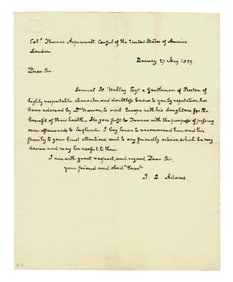 Col.º Thomas Aspinwall, Consul of the United States of America
London.
Quincy 27 May 1839.
Dear Sir
Samuel H. Walley Esqr. a Gentleman of Boston of
highly respectable character, and doubtless known to you by reputation, has
been advised by Dr Warren, to visit Europe with his daughters for the
benefit of their health. He goes first to France with the purpose of passing
over afterwards to England. I beg leave to recommend him and his
family to your kind attentions and to any friendly advice, which he may
desire and may be useful to them
I am with great respect, and regard, Dear Sir,
your friend and obedt Servt
J. Q. Adams.